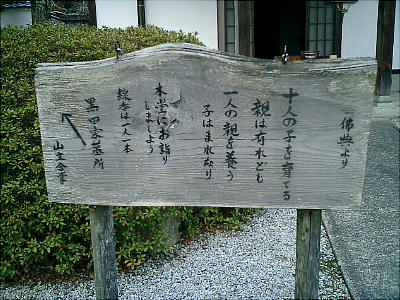 佛典より
十人の子を育てる
親は有れども
一人の親を養う
子はまれなり
本堂にお詣り
しましよう
線香は一人一本
黒田家墓所
山主合掌